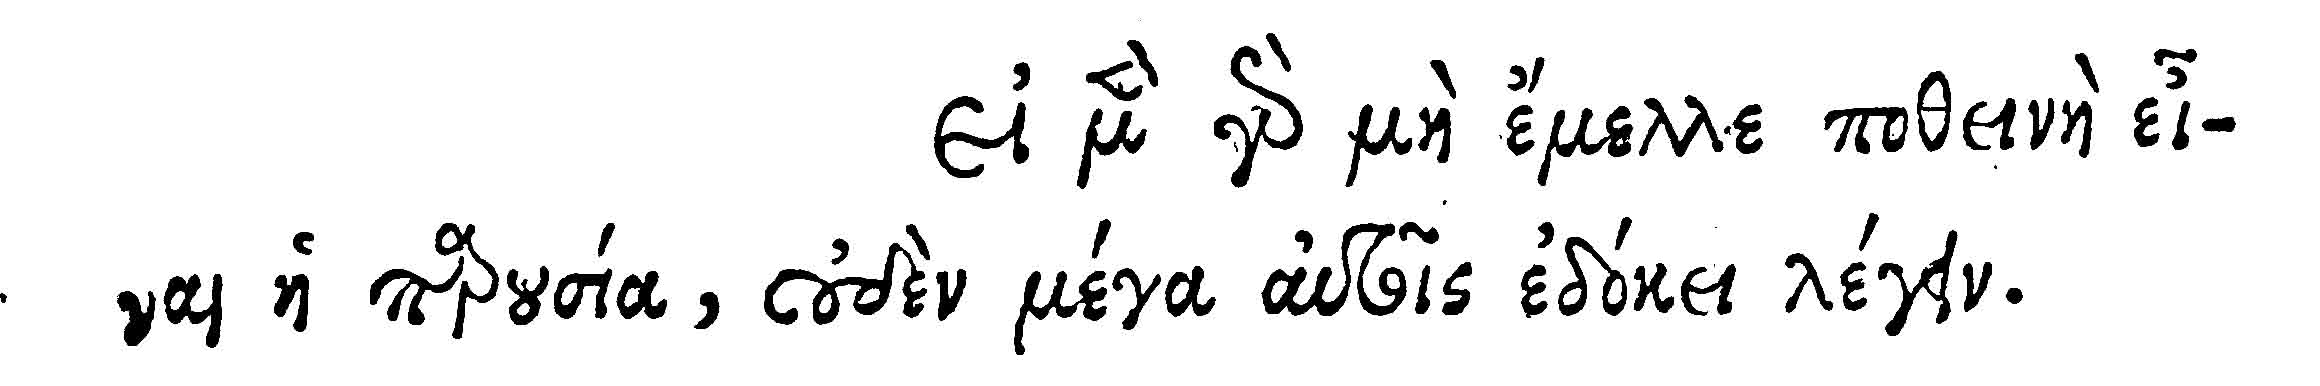 εἰ μὲν γὰρ μὴ ἔμελλε ποθεινὴ εἶ-
ναι ἡ παρουσία, οὐδὲν μέγα αὐτοῖς ἐδόκει λέγειν.